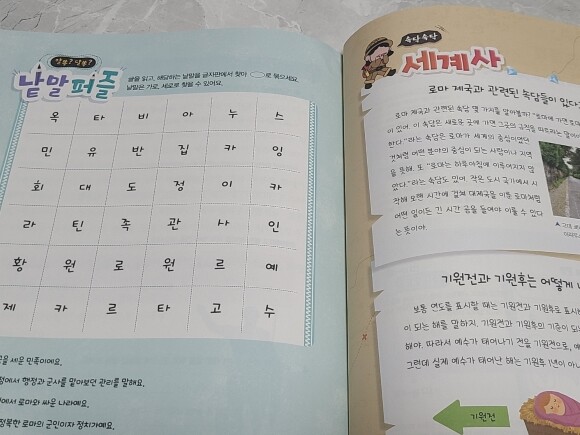 알쏭? 달쏭?
낱말퍼즐
글을 읽고, 해당하는 낱말을 글자판에서 찾아 ○로 묶으세요.
낱말은 가로, 세로로 찾을 수 있어요.
옥 타 비 아 누 스
민 유 반 집 카 잉
회 대 도 정 이 카
라 틴 족 관 사 인
황 원 로 원 르 예
제 카 르 타 고 수
을 세운 민족이에요.
정에서 행정과 군사를 맡아보던 관리를 말해요.
에서 로마와 싸운 나라예요.
정복한 로마의 군인이자 정치가예요.
속닥속닥
세계사
로마 제국과 관련된 속담들이 있다
로마 제국과 관련된 속담 몇 가지를 알아볼까? '로마에 가면 로마
이 있어. 이 속담은 새로운 곳에 가면 그곳의 규칙을 따르라는 말이야
한다."라는 속담은 로마가 세계의 중심이었던
것처럼 어떤 분야의 중심이 되는 사람이나 지역
을 뜻해. 또 "로마는 하루아침에 이루어지지 않
았다."라는 속담도 있어. 작은 도시 국가에서 시
작해 오랜 시간에 걸쳐 대제국을 이룬 로마처럼
어떤 일이든 긴 시간 공을 들여야 이룰 수 있다
는 뜻이야.
▲ 고대
기원전과 기원후는 어떻게
보통 연도를 표시할 때는 기원전과 기원후로 표시
이 되는 해를 말하지. 기원전과 기원후의 기준이 되
해야. 따라서 예수가 태어나기 전을 기원전으로, 예
그런데 실제 예수가 태어난 해는 기원후 1년이 아니
기원전